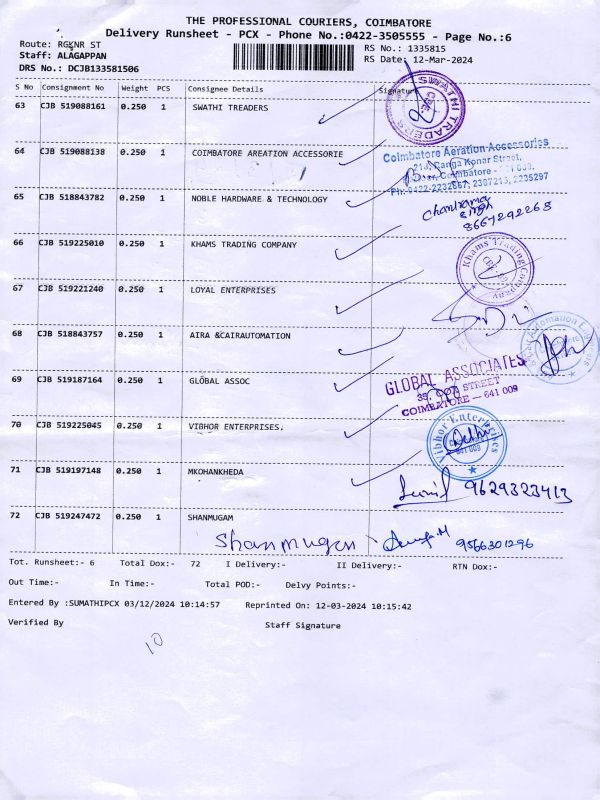 THE PROFESSIONAL COURIERS, COIMBATORE
Delivery Runsheet - PCX - Phone No.:0422-3505555 - Page No.:6
Route: RGKNR ST
RS No.: 1335815
Staff: ALAGAPPAN
RS Date: 12-Mar-2024
DRS No.: DCJB133581506
S No Consignment No Weight PCS Consignee Details Signature
63 CJB 519088161 0.250 1 SWATHI TREADERS
SWATHI TRADERS
CBE.
64 CJB 519088138 0.250 1 COIMBATORE AREATION ACCESSORIE
Coimbatore Aeration Accessories
Ranga Konar Street,
Coimbatore
Ph: 0422-2232667, 2307215, 2235297
65 CJB 518843782 0.250 1 NOBLE HARDWARE & TECHNOLOGY
Singh
8667292268
66 CJB 519225010 0.250 1 KHAMS TRADING COMPANY
Khams Trading Company
67 CJB 519221240 0.250 1 LOYAL ENTERPRISES
68 CJB 518843757 0.250 1 AIRA &CAIRAUTOMATION
69 CJB 519187164 0.250 1 GLOBAL ASSOC
GLOBAL ASSOCIATES
STREET
COIMBATORE - 641 009
70 CJB 519225045 0.250 1 VIBHOR ENTERPRISES.
Vibhor Enterprises
71 CJB 519197148 0.250 1 MKOHANKHEDA
9629323413
72 CJB 519247472 0.250 1 SHANMUGAM
Shanmugam 9566301296
Tot. Runsheet:- 6 Total Dox:- 72 I Delivery:- II Delivery:- RTN Dox:-
Out Time:- In Time:- Total POD:- Delvy Points:-
Entered By :SUMATHIPCX 03/12/2024 10:14:57 Reprinted On: 12-03-2024 10:15:42
Verified By Staff Signature
10